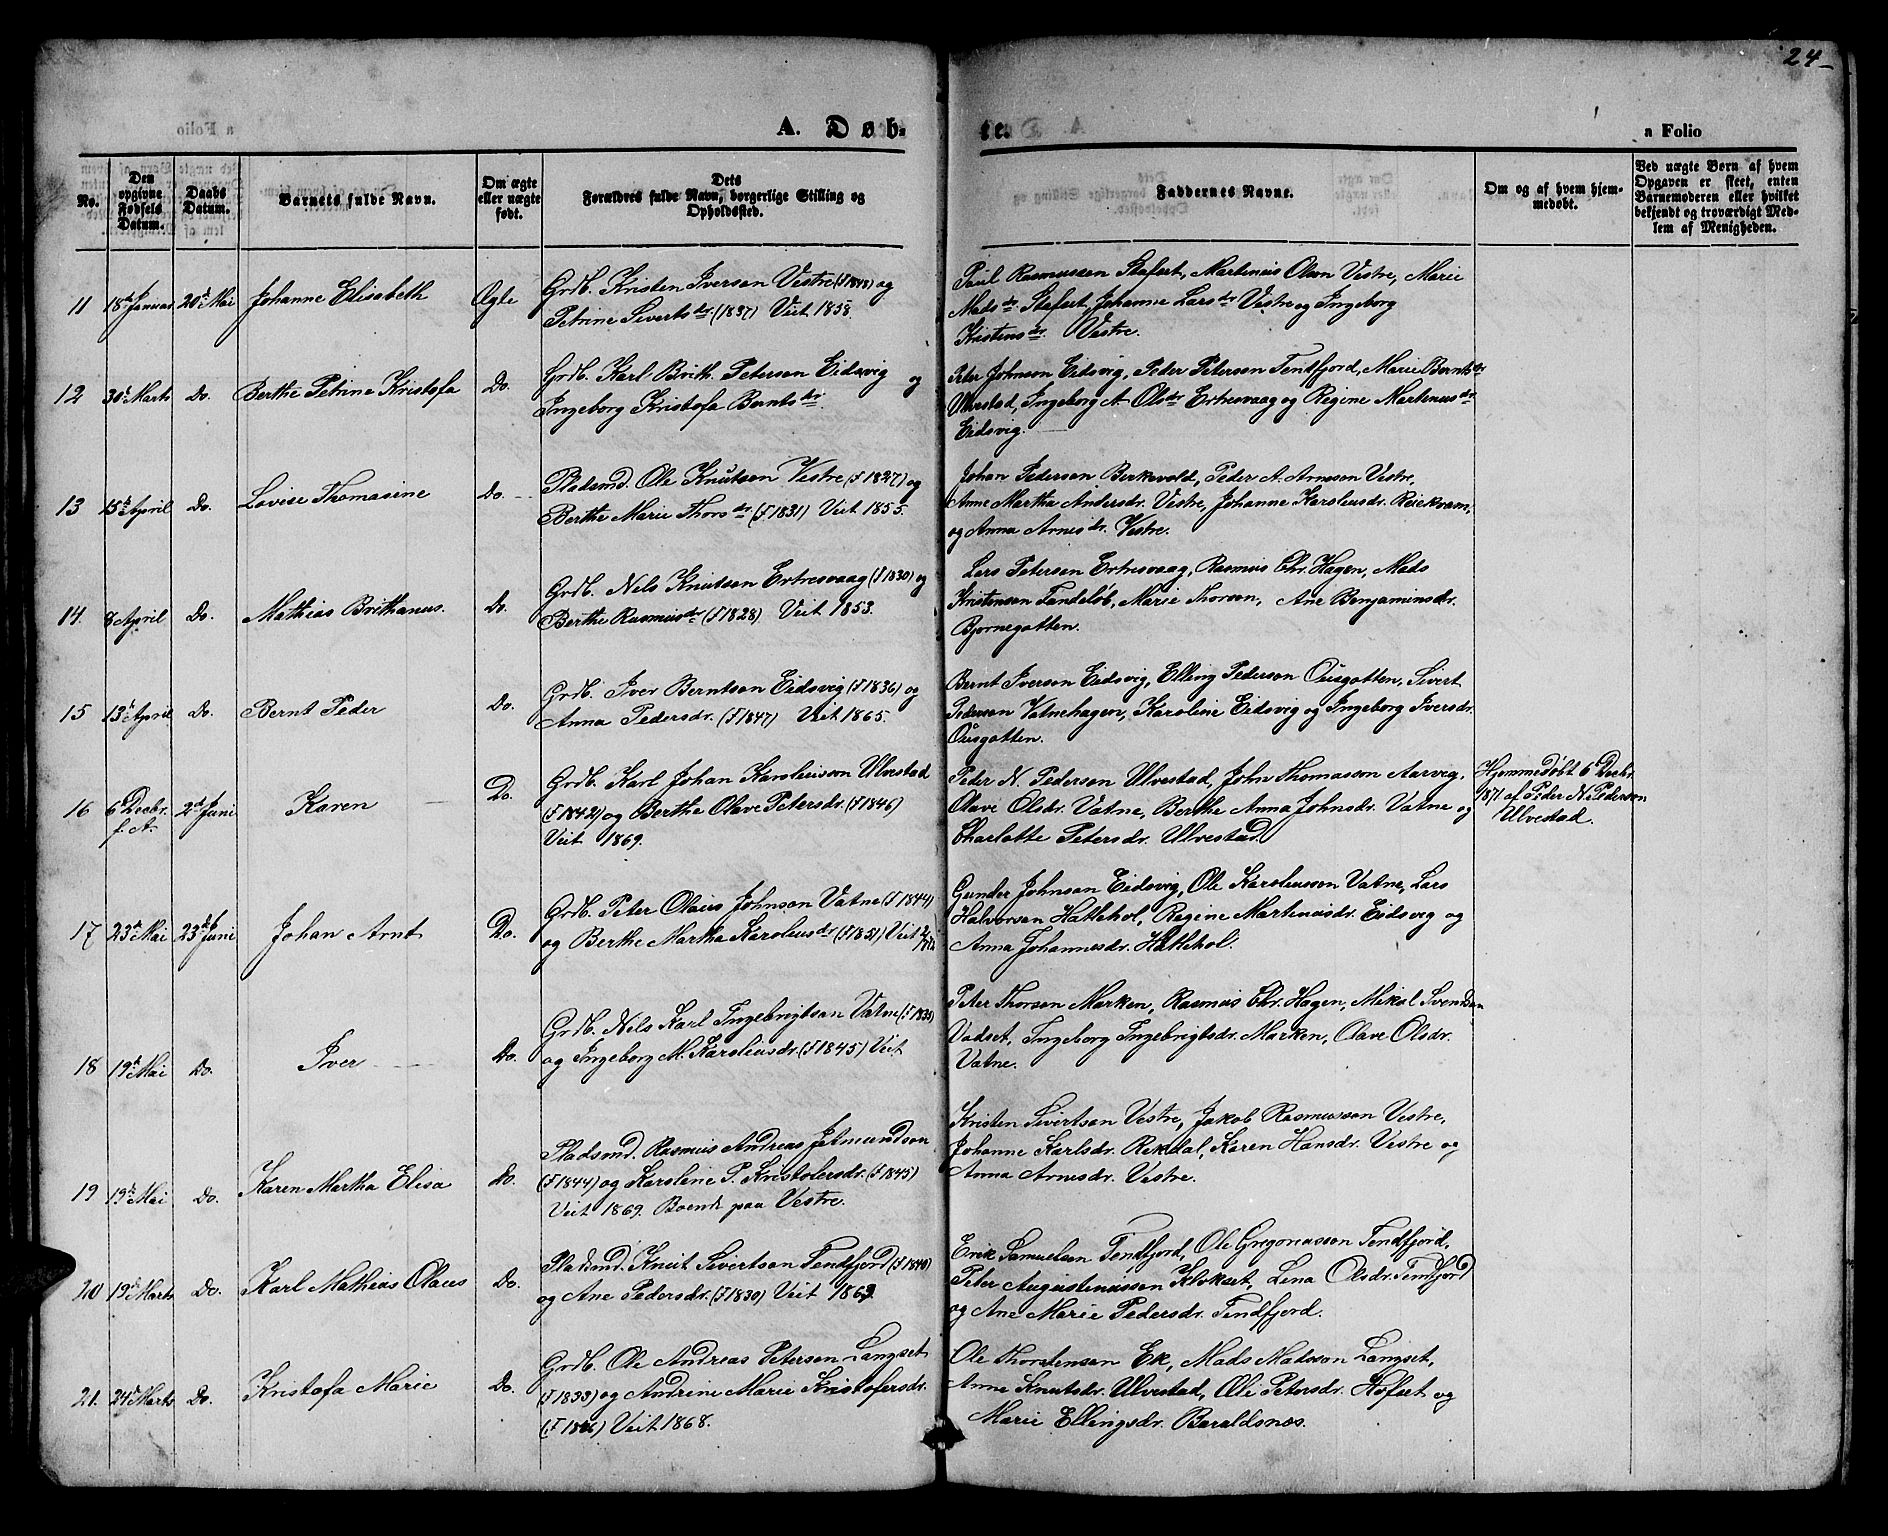 24
A. Døb-
te.
a Folio
No.
Den opgivne Fødsels Datum.
Daabs Datum.
Barnets fulde Navn.
Om ægte eller uægte født.
Dets Forældres fulde Navn, borgerlige Stilling og Opholdssted.
Faddernes Navne.
Om og af hvem hjemmedøbt.
Ved uægte Børn af hvem Opgaven er skeet, enten Barnemoderen eller hvilket bekjendt og troværdigt Medlem af Menigheden.
11 18de Januar 20de Mai Johanne Elisabeth Ægte
Grdb. Kristen Iverson Vestre (F 1843) og
Petrine Siverts dr (1837) Viet 1858.
Paul Rasmussen Slafset, Martinius Olson Vestre, Marie
Mads dr Slafset, Johanne Lars dr Vestre og Ingeborg
Kristens dr. Vestre.
12 30de Marts Do. Berthe Petrine Kristofa Do.
Grdb. Karl Brith. Peterson Eidsvig og
Ingeborg Kristofa Bernts dr.
Peter Johnson Eidsvig, Peder Peterson Tendfjord, Marie Bernts dr
Ulvestad, Ingeborg A Ols dr Ertresvaag og Regine Martinus dr
Eidsvig.
13 15de April Do. Lovise Thomasine Do.
Pladsmd. Ole Knutson Vestre (F 1827) og
Berthe Marie Thors dr (F 1831) Viet 1855.
Johan Pederson Birkevold, Peder A. Arneson Vestre,
Anne Martha Andersdr. Vestre, Johanne Karoliusdr. Reiekvam,
og Anna Arnes dr. Vestre.
14. 8 April Do. Mathias Brithanus. Do.
Grdb. Nels Knutson Ertresvaag (F 1830) og
Berthe Rasmus dr (F 1828) Viet 1853.
Lars Peterson Ertresvaag, Rasmus Chr. Hagen, Mads
Kristenson Tandeløb, Marie Thorson, Ane Benjaminsdr.
Bjørnegotten.
15 13de April Do. Bernt Peder Do.
Grdb. Iver Berntson Eidsvig (F 1836) og
Anna Pedersdr. (F 1847) Viet 1865.
Bernt Iverson Eidsvig, Elling Pederson Ousgotten, Sivert
Pederson Vatnehagen, Karoline Eidsvig og Ingeborg Iversdr.
Ousgotten.
16 6 Decbr. f. A. 2de Juni Karen Do.
Grdb. Karl Johan Karoliusson Ulvestad
(F 1842) og Berthe Olave Petersdr. (F 1846)
Viet 1869.
Peter N. Pederson Ulvestad, John Thomasson Aarvig,
Olave Olsdr. Vatne, Berthe Anna Johnsdr. Vatne og
Charlotte Petersdr. Ulvestad.
Hjemmedøbt 6 Decbr.
1871 af Peder N. Pederson
Ulvestad.
17 23de Mai 23de Juni Johan Arnt Do.
Grdb. Peter Olaus Johnson Vatne (F 1844)
og Berthe Martha Karolius dr (F 1851) Viet
Gunder Johnson Eidsvig, Ole Karoliusson Vatne, Lars
Halvorson Hatlehol, Regine Martinusdr. Eidsvig og
Anna Johannesdr. Hatlehol.
18 19de Mai Do. Iver Do.
Grdb. Nels Karl Ingebrigtson Vatne
og Ingeborg M. Karoliusdr. (F 1845) Viet
Peter Thorson Marken, Rasmus Chr. Hagen, Mikal Svendson
Vadset, Ingeborg Ingebrigtsdr. Marken, Olave Olsdr.
Vatne.
19 19de Mai Do. Karen Martha Elisa Do.
Pladsmd. Rasmus Andreas Jetmundson
(F 1844) og Karoline P. Kristofersdr. (F 1845)
Viet 1869. Boende paa Vestre.
Kristen Sivertson Vestre, Jakob Rasmusson Vestre,
Johanne Karlsdr. Rekdal, Karen Hansdr. Vestre og
Anna Arnesdr. Vestre.
20 19de Marts Do. Karl Mathias Olaus Do.
Pladsmd. Knut Sivertson Tendfjord (F 1840)
og Ane Pedersdr. (F 1830) Viet 1863
Erik Samuelson Tendfjord, Ole Gregoriusson Tendfjord,
Peter Augustinussen Klokset, Lina Olsdr. Tendfjord
og Ane Marie Pedersdr. Tendfjord.
21. 24de Marts Do. Kristofa Marie Do.
Grdb. Ole Andreas Peterson Langset
(F 1833) og Andrine Marie Kristofersdr.
(F 1846) Viet 1868.
Ole Thorstenson Ek, Mads Madsson Langset,
Anne Knutsdr. Ulvestad, Oli Petersdr. Hofset og
Marie Ellingsdr. Baraldsnes.